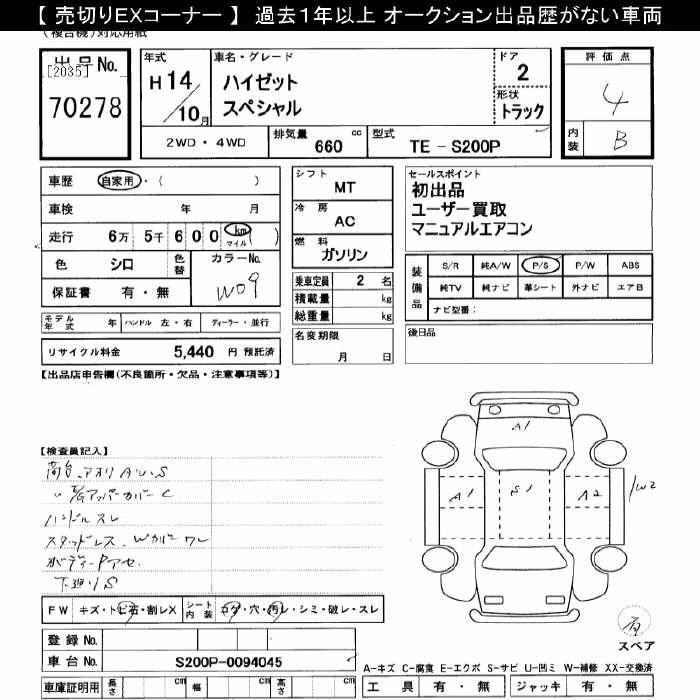 【 売切りEXコーナー 】 過去1年以上 オークション出品歴がない車両
(複合機)対応用紙
出品No.
[2035]
70278
年式
H14
/10月
車名・グレード
ハイゼット
スペシャル
ドア
2
形状
トラック
2WD・4WD
排気量
660
cc
型式
TE － S200P
評価点
4
内装
B
車歴
自家用・( )
車検
年 月
走行
6万 5千 600 km マイル ( )
色
シロ
色替
カラーNo.
W09
保証書
有・無
モデル年式
年
ハンドル 左・右
ディーラー・並行
リサイクル料金
5,440 円 預託済
シフト
MT
冷房
AC
燃料
ガソリン
乗車定員 2 名
積載量 kg
総重量 kg
名変期限
月 日
セールスポイント
初出品
ユーザー買取
マニュアルエアコン
装備品
S/R 純A/W P/S P/W ABS
純TV 純ナビ 革シート 外ナビ エアB
ナビ型番：
後日品
【出品店申告欄(不良箇所・欠品・注意事項等)】
【検査員記入】
荷台、アオリ A.U.S
〃 E/Gアッパーカバー C
ハンドル スレ
スタッドレス、Wカバー ワレ
ボディーPアセ
下廻りS
A1
A1
S1
A2
W2
FW キズ・トビ石・割レX
シート内装 コゲ・穴・汚レ・シミ・破レ・スレ
登録 No.
車台 No.
S200P-0094045
車庫証明用
長さ cm 幅 cm 高さ cm
有
スペア
A-キズ C-腐食 E-エクボ S-サビ U-凹ミ W-補修 XX-交換済
工具 有・無
ジャッキ 有・無